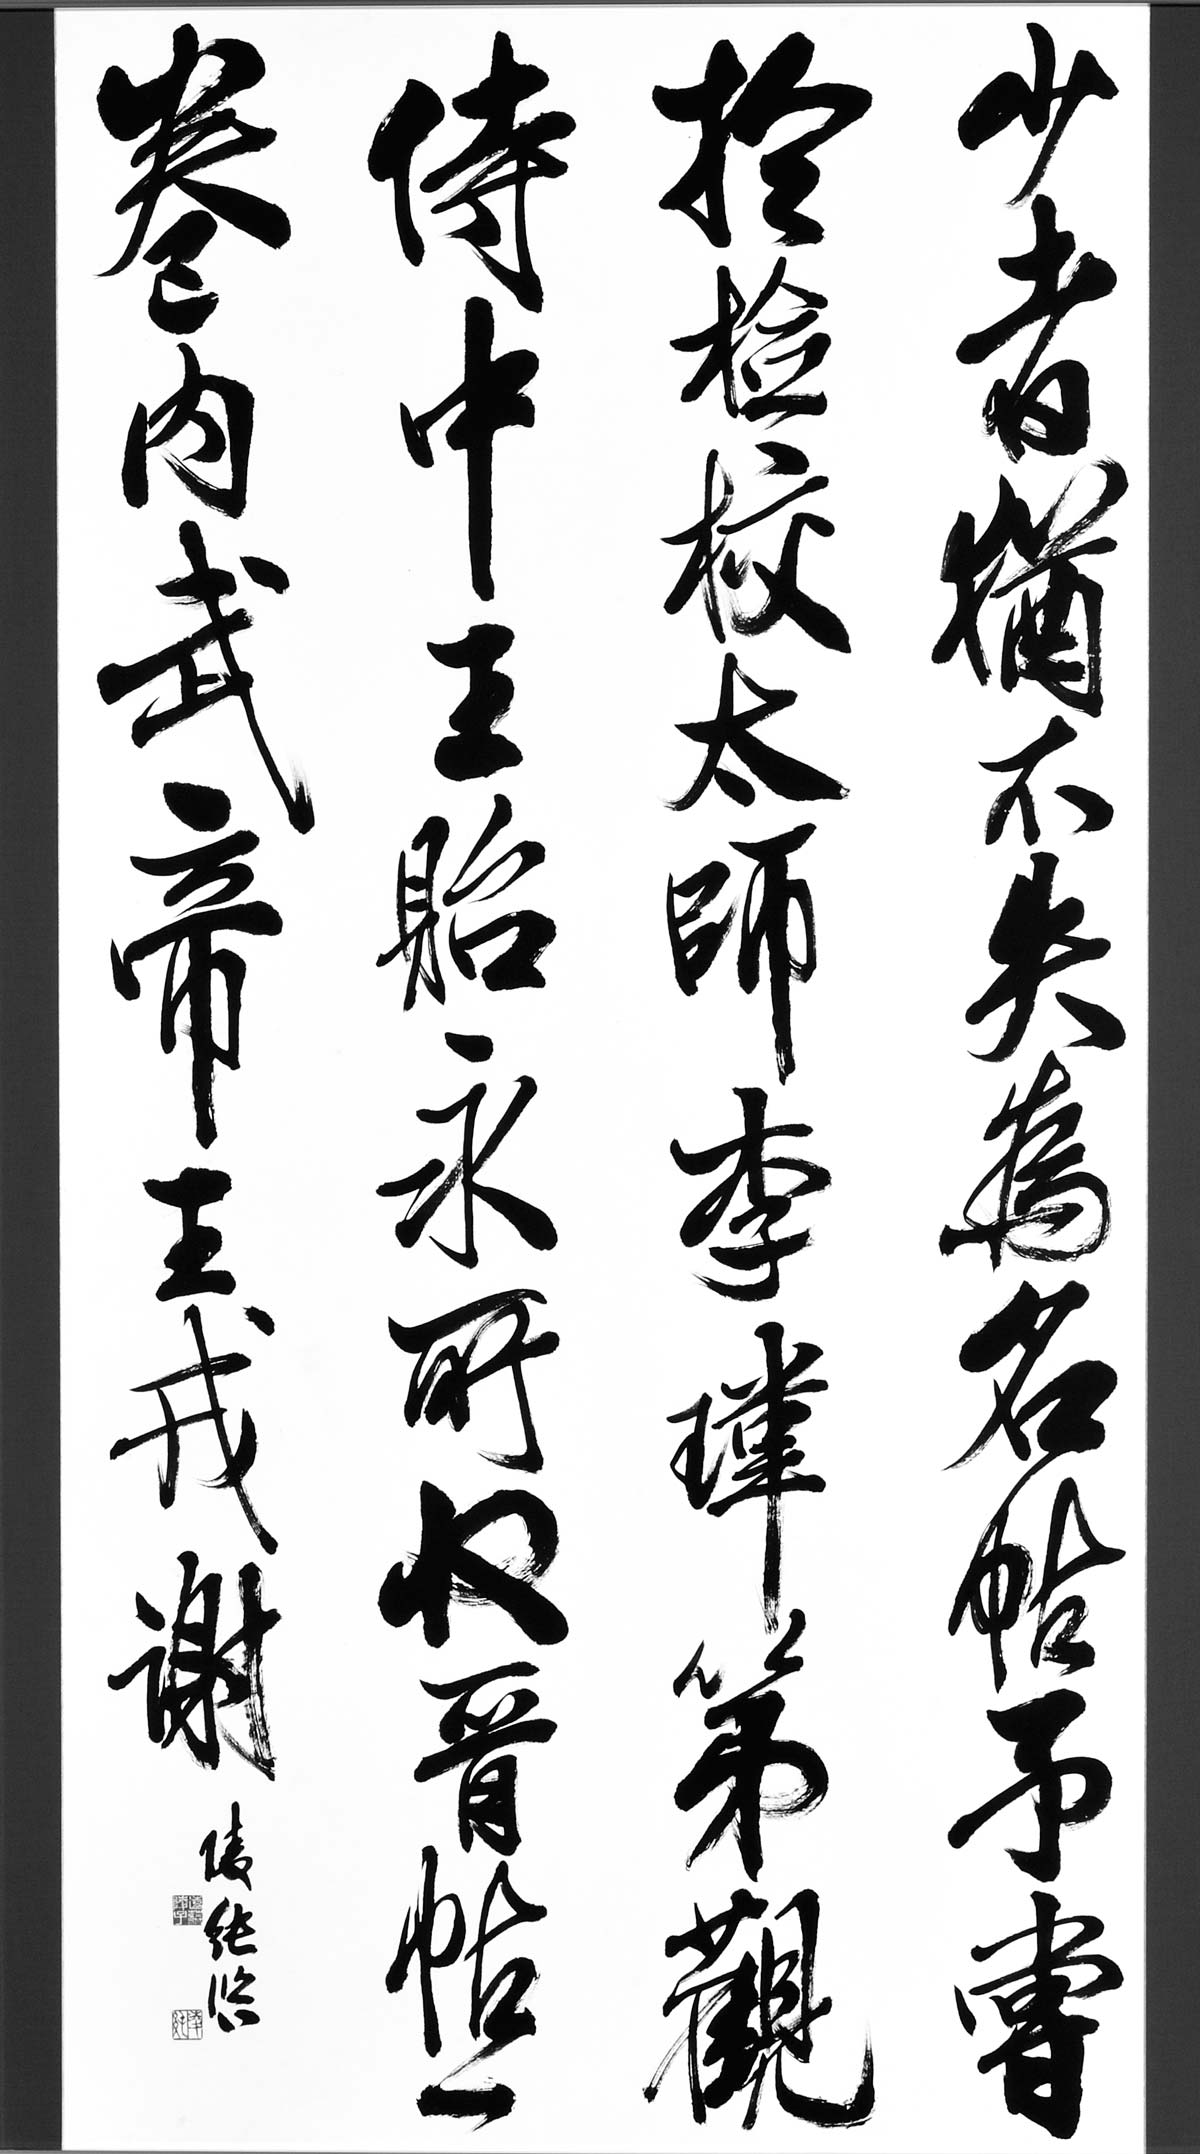 少者猶不失為名帖予嘗
於檢校太師李瑋第觀
侍中王貽永所收晉帖一
卷內武帝王戎謝
陵純臨